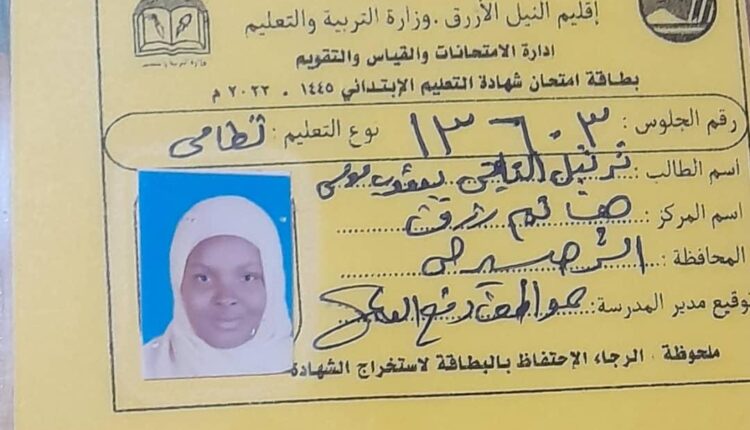 إقليم النيل الأزرق . وزارة التربية والتعليم
إدارة الامتحانات والقياس والتقويم
بطاقة امتحان شهادة التعليم الإبتدائي ١٤٤٥ - ٢٠٢٣ م
رقم الجلوس : ١٣٦٠٣ نوع التعليم : نظامى
اسم الطالب : ترتيل التجاني يعقوب موسى
اسم المركز : هاشم رزق
المحافظة : الرصيرص
توقيع مدير المدرسة :
ملحوظة - الرجاء الإحتفاظ بالبطاقة لاستخراج الشهادة